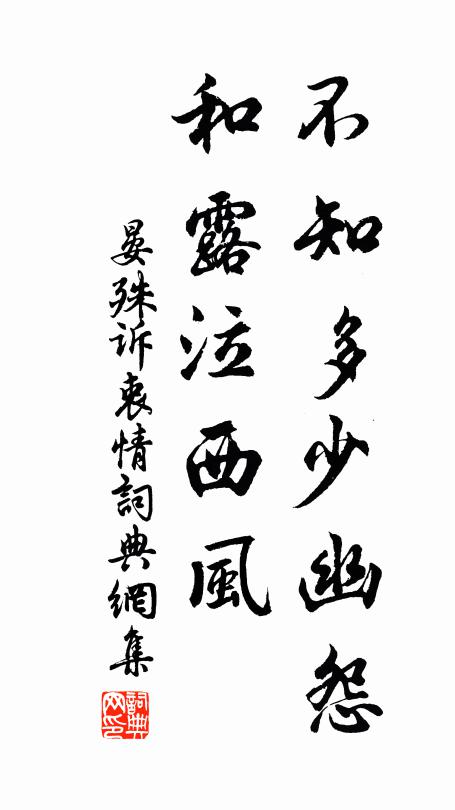 不知多少幽怨
和露泣西风
晏殊诉衷情詞典網集
詞典网印